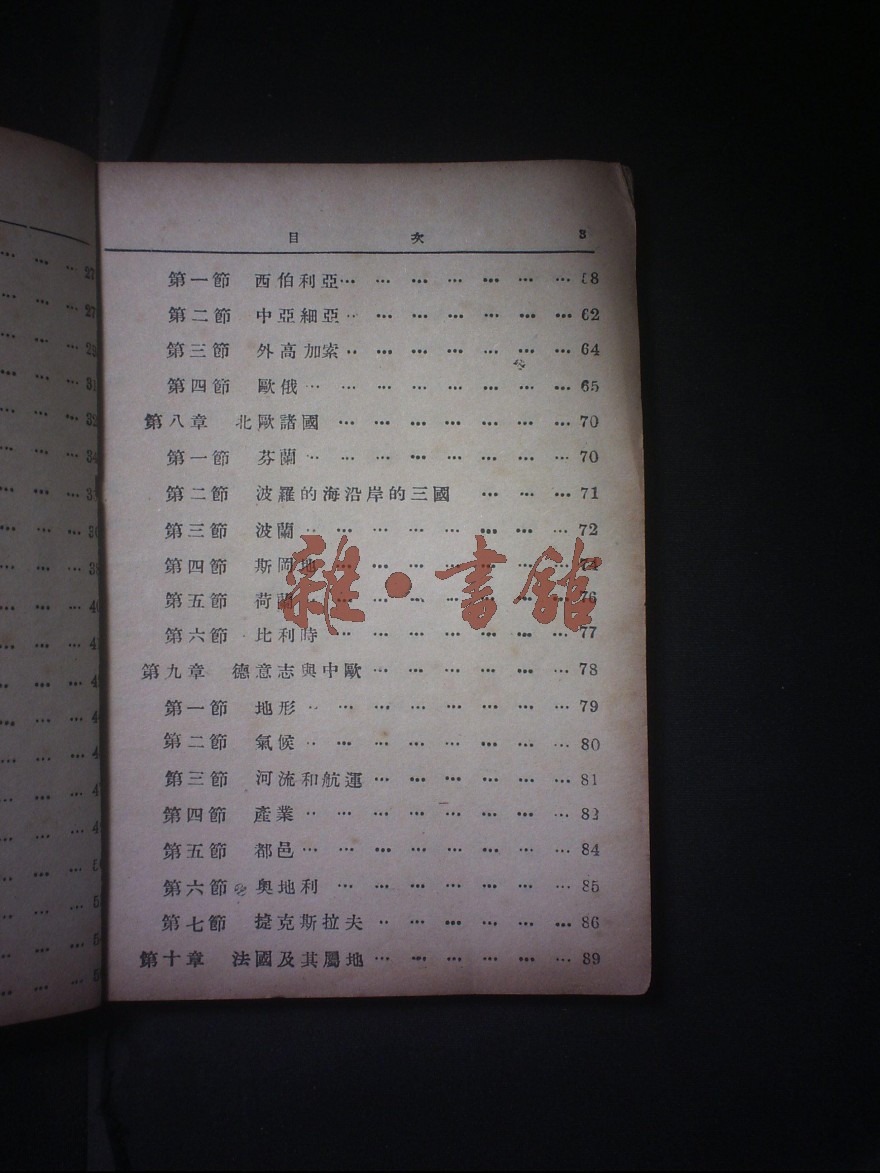 目 次 3
第一節 西伯利亞… … … … … … … 58
第二節 中亞細亞… … … … … … … 62
第三節 外高加索… … … … … … … 64
第四節 歐俄… … … … … … … … 65
第八章 北歐諸國 … … … … … … … 70
第一節 芬蘭… … … … … … … … 70
第二節 波羅的海沿岸的三國 … … … 71
第三節 波蘭… … … … … … … … 72
第四節 斯岡地… … … … … … … 74
第五節 荷蘭… … … … … … … … 76
第六節 比利時… … … … … … … 77
第九章 德意志與中歐 … … … … … … 78
第一節 地形… … … … … … … … 79
第二節 氣候… … … … … … … … 80
第三節 河流和航運 … … … … … … 81
第四節 產業… … … … … … … … 83
第五節 都邑… … … … … … … … 84
第六節 奧地利 … … … … … … … 85
第七節 捷克斯拉夫… … … … … … 86
第十章 法國及其屬地… … … … … … 89
雜·書館